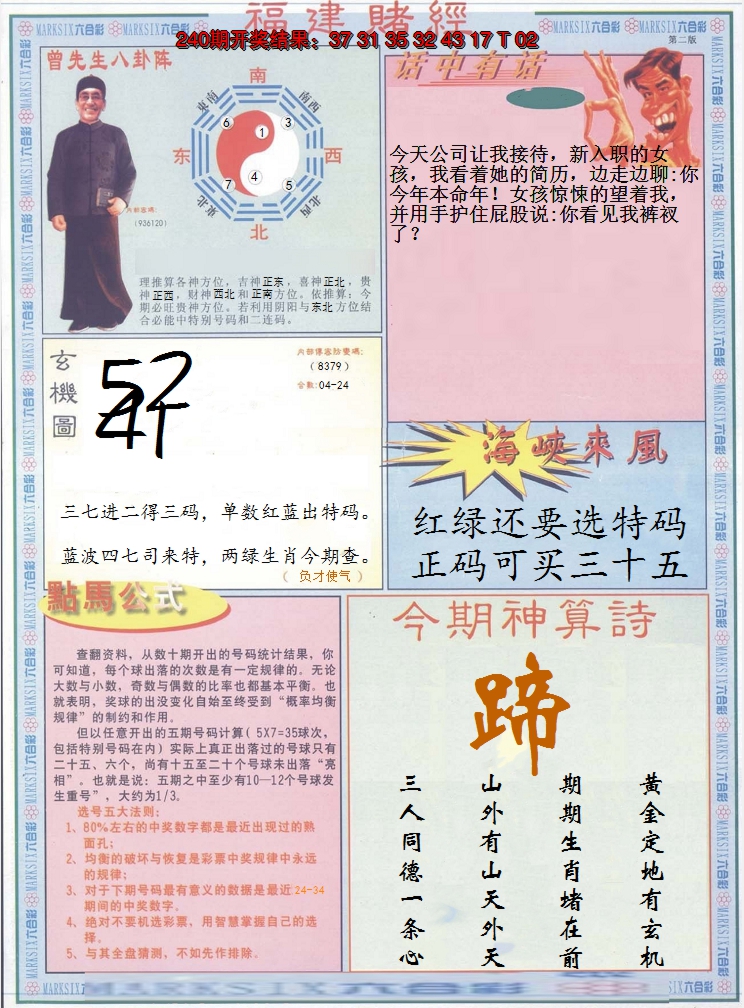 福建賭經
240期开奖结果：37 31 35 32 43 17 T 02
MARKSIX六合彩
第二版
曾先生八卦阵
南
東南
南西
6
1
3
东
西
7
4
5
東北
北西
北
內部密碼:
（936120）
理推算各神方位，吉神正东，喜神正北，贵
神正西，财神西北和正南方位。依推算：今
期必旺贵神方位。若利用阴阳与东北方位结
合必能中特别号码和二连码。
话中有话
今天公司让我接待，新入职的女
孩，我看着她的简历，边走边聊:你
今年本命年！女孩惊悚的望着我，
并用手护住屁股说:你看见我裤衩
了？
玄機圖
内部傳密防變碼:
（8379）
合数:04-24
三七进二得三码，单数红蓝出特码。
蓝波四七司来特，两绿生肖今期查。
（ 负才使气 ）
海峽來風
红绿还要选特码
正码可买三十五
點馬公式
查翻资料，从数十期开出的号码统计结果，你
可知道，每个球出落的次数是有一定规律的。无论
大数与小数，奇数与偶数的比率也都基本平衡。也
就表明，奖球的出没变化自始至终受到“概率均衡
规律”的制约和作用。
但以任意开出的五期号码计算（5X7=35球次，
包括特别号码在内）实际上真正出落过的号球只有
二十五、六个，尚有十五至二十个号球未出落“亮
相”。也就是说：五期之中至少有10—12个号球发
生重号”，大约为1/3。
选号五大法则：
1、80%左右的中奖数字都是最近出现过的熟
面孔；
2、均衡的破坏与恢复是彩票中奖规律中永远
的规律；
3、对于下期号码最有意义的数据是最近24-34
期间的中奖数字。
4、绝对不要机选彩票，用智慧掌握自己的选
择。
5、与其全盘猜测，不如先作排除。
今期神算詩
蹄
黄金定地有玄机
期期生肖堵在前
山外有山天外天
三人同德一条心